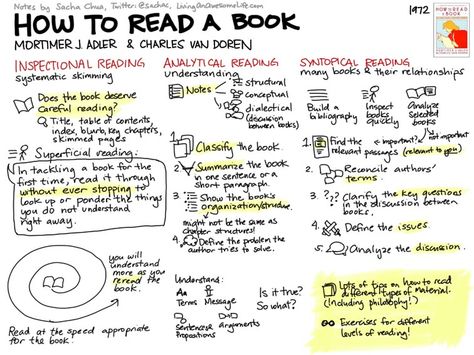 Notes by Sacha Chua, Twitter: @sachac, LivingAnAwesomeLife.com
HOW TO READ A BOOK
MORTIMER J. ADLER & CHARLES VAN DOREN
1972
HOW TO READ
A BOOK
INSPECTIONAL READING
systematic skimming
Does the book deserve
careful reading?
Title, table of contents,
index, blurb, key chapters,
skimmed pages
Superficial reading:
In tackling a book for the
first time, read it through
without ever stopping to
look up or ponder the things
you do not understand
right away.
you will
understand
more as you
reread the
book.
Read at the speed appropriate
for the book.
ANALYTICAL READING
understanding
Notes
structural
conceptual
dialectical
(discussion between
books)
1. Classify the book.
2. Summarize the book
in one sentence or a
short paragraph.
3. Show the book's
organization/structure.
might not be the same as
chapter structures!
4. Define the problem the
author tries to solve.
Understand:
Aa
Terms
Message
Sentences and
Propositions
arguments
Is it true?
So what?
SYNTOPICAL READING
many books & their relationships
Build a
bibliography
Inspect
books
quickly
Analyze
selected
books
1. Find the
relevant passages
important?
not important
(relevant to you)
2. Reconcile authors'
terms.
3. ??? Clarify the key questions
in the discussion between
books.
4. Define the issues.
5. Analyze the discussion.
Lots of tips on how to read
different types of material.
(Including philosophy!)
Exercises for different
levels of reading!